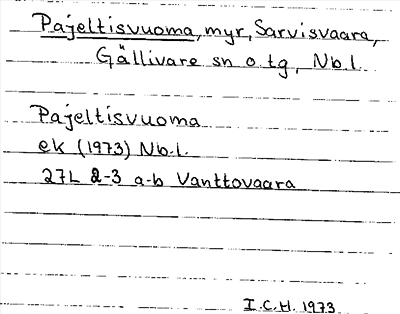 Pajeltisvuoma, myr, Sarvisvaara,
Gällivare sn o. tg, Nb.l.
Pajeltisvuoma
ek (1973) Nb.l.
27L 2-3 a-b Vanttovaara
I.C.H. 1973